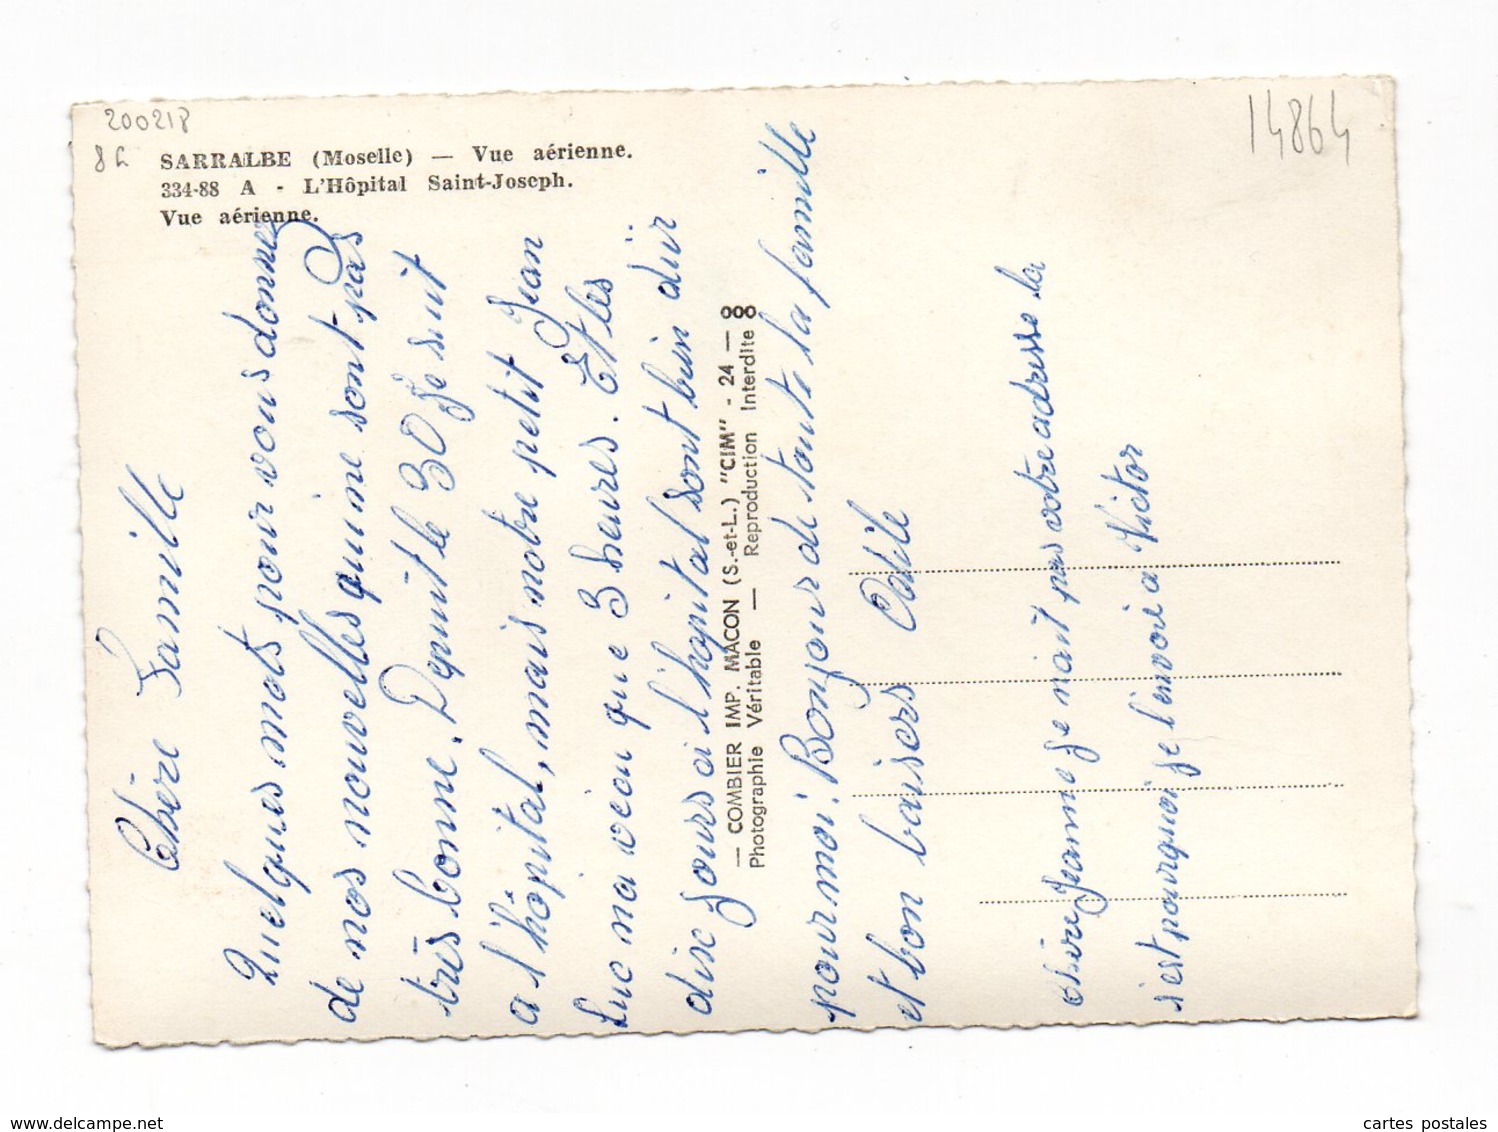 200218
8h
14864
SARRALBE (Moselle) — Vue aérienne.
334-88 A - L'Hôpital Saint-Joseph.
Vue aérienne.
Chère Famille
Quelques mots pour vous donner
de nos nouvelles qui ne sont pas
très bonne. Depuit le 30 je suit
a l'hôpital, mais notre petit Jean
Luc na vécu que 3 heures. Et les
disc jours à l'hopital sont bien dür
pour moi. Bonjour de toute la famille
et bon baisers Odile
— COMBIER IMP. MACON (S.-et-L.) "CIM" - 24 — 000
Photographie Véritable — Reproduction Interdite
chère Jeanne je n'ait pas votre adresse la
s'est pourquoi je l'envoi a Victor
delcampe.net
cartes postales